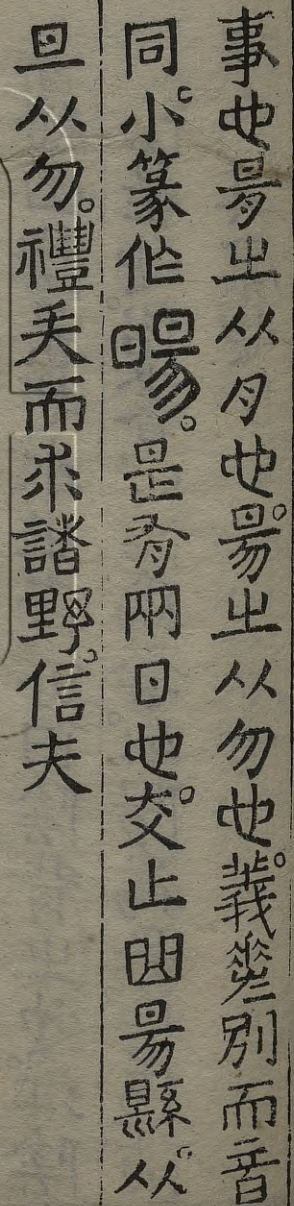 事也易㞢从月也。昜㞢从勿也。義差別而音
同。小篆作暘。是有兩日也。交止曲昜縣。从
旦从勿。禮失而求諸野。信夫